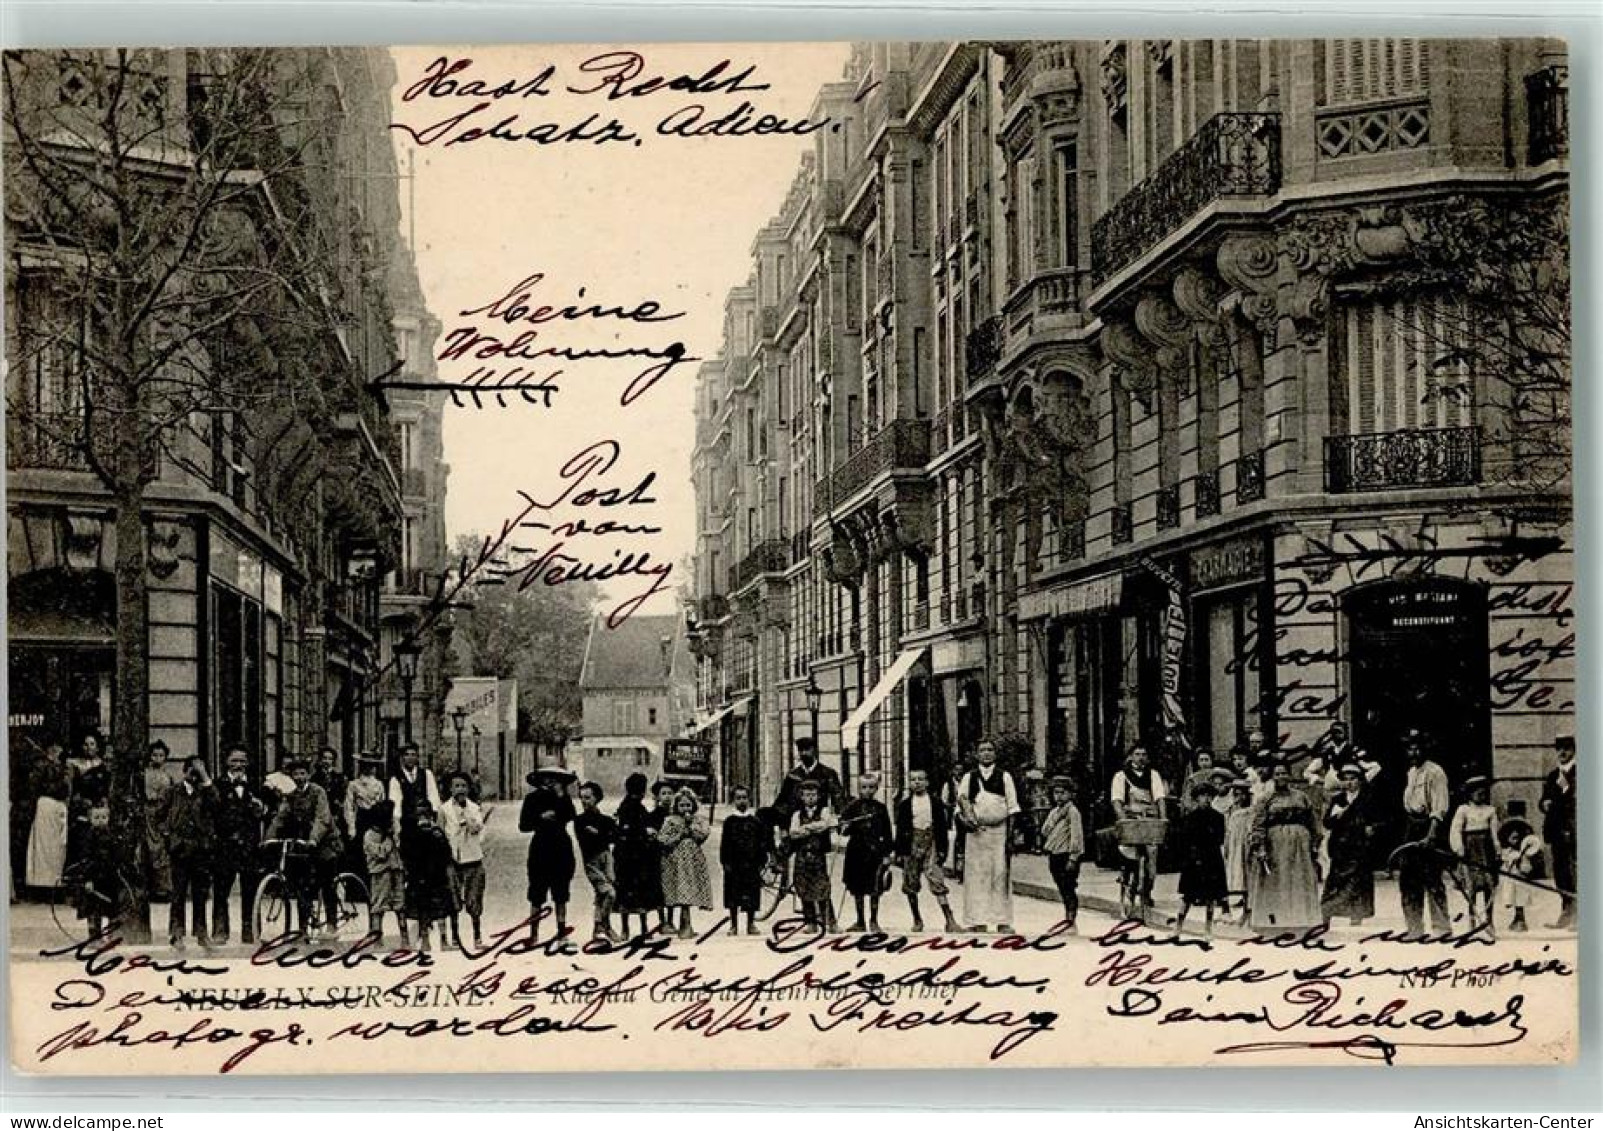 Hast Recht
Schatz. Adieu.
Meine
Wohnung
Post
- von
Neuilly
BUVETTE
Das
Haus
das
dist
ist
Ge-
RECONSTITUANT
HERJOT
Mein lieber Schatz! Diesmal bin ich mit
Deinem Brief zufrieden. Heute sind wir
NEUILLY-SUR-SEINE. - Rue du Général Henrion Berthier
ND Phot
photogr. worden. Bis Freitag Dein Richard
Ansichtskarten-Center